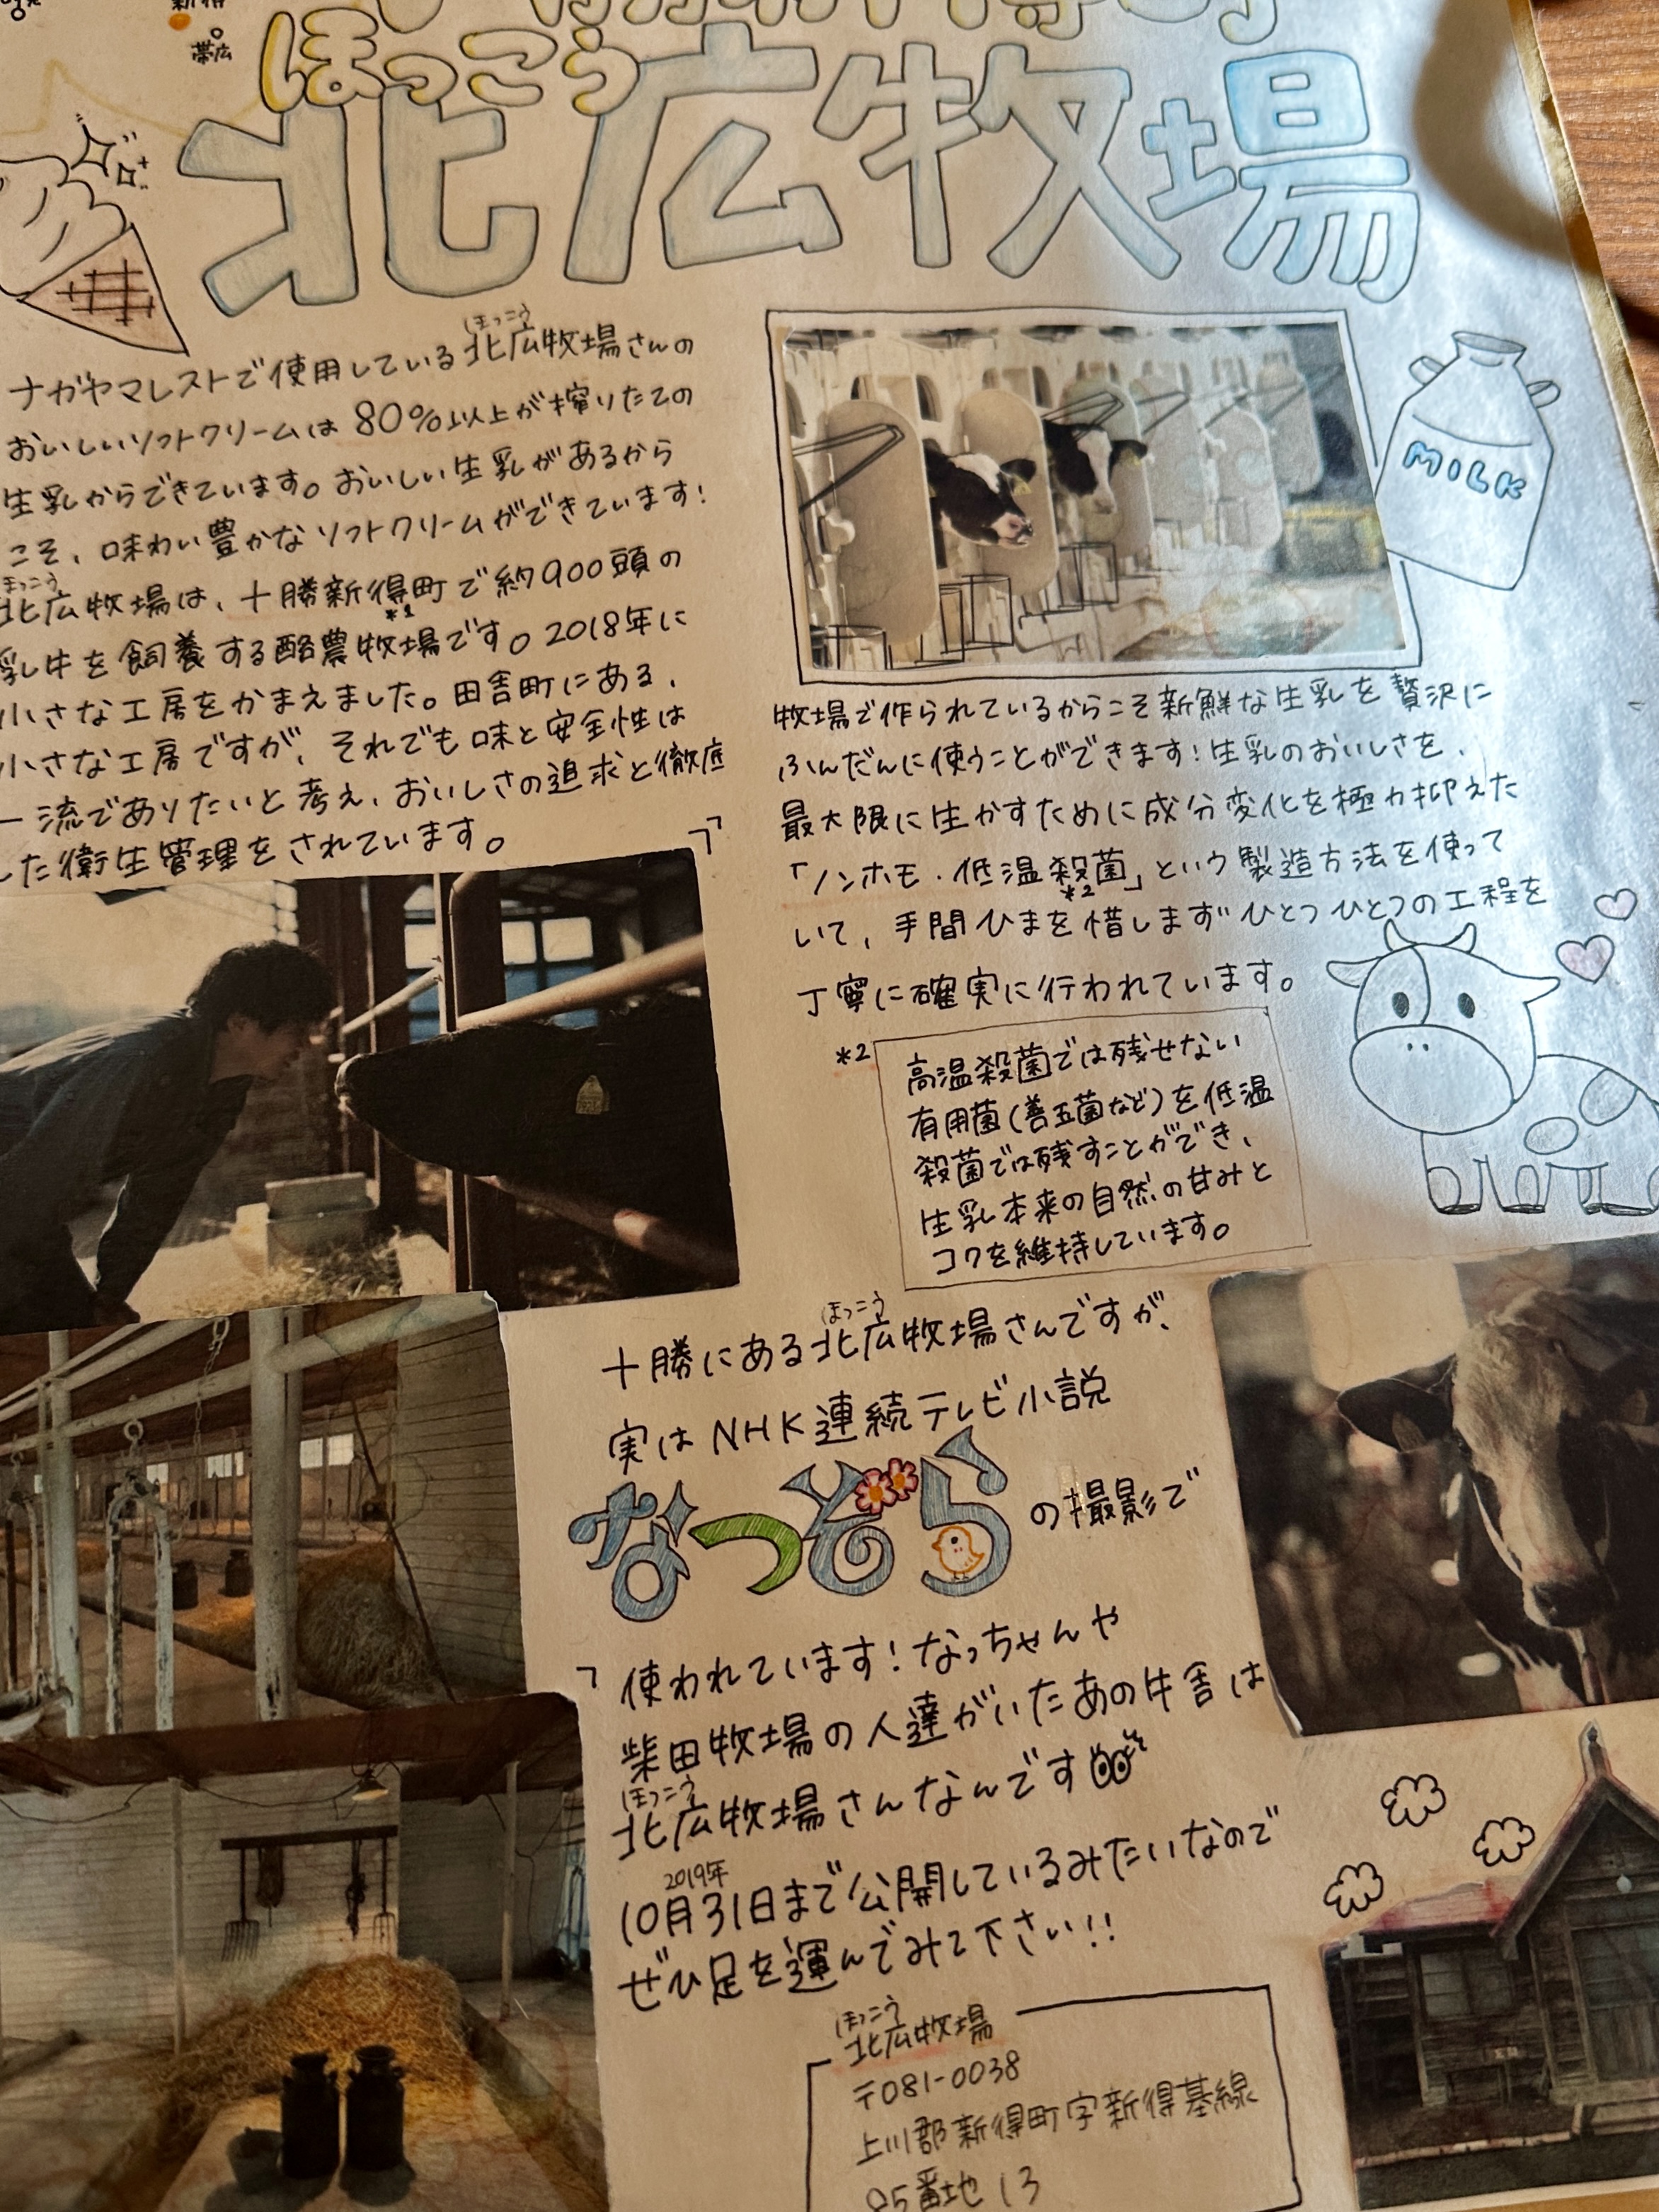 新得
帯広
ほっこう
北広牧場
ナガヤマレストで使用している北広牧場さんの
ほっこう
おいしいソフトクリームは80%以上が搾りたての
生乳からできています。おいしい生乳があるから
こそ、味わい豊かなソフトクリームができています!
ほっこう
北広牧場は、十勝新得町で約900頭の
*1
乳牛を飼養する酪農牧場です。2018年に
小さな工房をかまえました。田舎町にある、
小さな工房ですが、それでも味と安全性は
一流でありたいと考え、おいしさの追求と徹底
した衛生管理をされています。
MILK
牧場で作られているからこそ新鮮な生乳を贅沢に
ふんだんに使うことができます!生乳のおいしさを、
最大限に生かすために成分変化を極力抑えた
「ノンホモ・低温殺菌」という製造方法を使って
*2
いて、手間ひまを惜しまずひとつひとつの工程を
丁寧に確実に行われています。
*2
高温殺菌では残せない
有用菌(善玉菌など)を低温
殺菌では残すことができ、
生乳本来の自然の甘みと
コクを維持しています。
ほっこう
十勝にある北広牧場さんですが、
実はNHK連続テレビ小説
なつぞらの撮影で
使われています!なっちゃんや
柴田牧場の人達がいたあの牛舎は
ほっこう
北広牧場さんなんです
2019年
10月31日まで公開しているみたいなので
ぜひ足を運んでみて下さい!!
ほっこう
北広牧場
〒081-0038
上川郡新得町字新得基線
95番地13